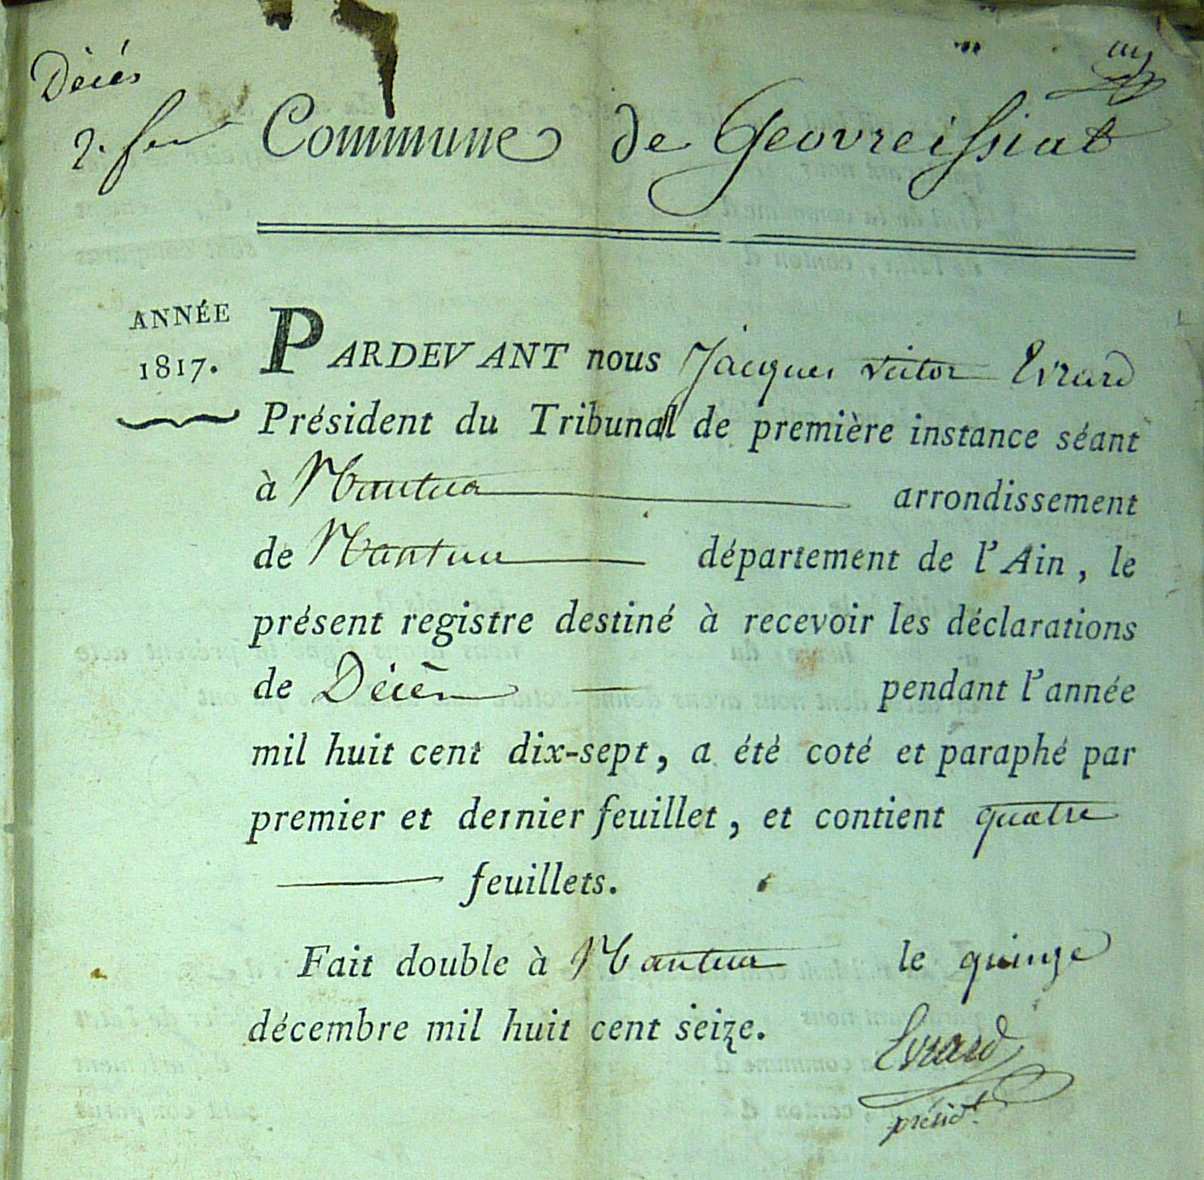 Décés
2. feu
Commune de Geovreissiat
ANNÉE
1817.
PARDEVANT nous Jacques Victor Evrard
Président du Tribunal de première instance séant
à Nantua arrondissement
de Nantua département de l'Ain, le
présent registre destiné à recevoir les déclarations
de Décès pendant l'année
mil huit cent dix-sept, a été coté et paraphé par
premier et dernier feuillet, et contient quatre
feuillets.
Fait double à Nantua le quinze
décembre mil huit cent seize.
Evrard
présidt.